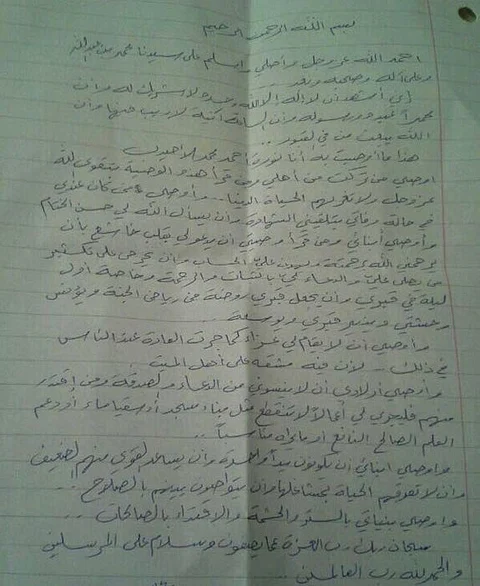 بسم الله الرحمن الرحيم
احمد الله عز وجل واصلي واسلم على سيدنا محمد بن عبد الله
وعلى آله وصحبه وبعد ..
إني أشهد أن لا إله إلا الله وحده لا شريك له وأن
محمداً عبده ورسوله وأن الساعة آتية لا ريب فيها وأن
الله يبعث من في القبور ..
هذا ما أوصيت به أنا نورة أحمد محمد
أوصي من تركت من أهلي ومن قرأ هذه الوصية بتقوى الله
عز وجل ولا تغرنهم الحياة الدنيا .. وأوصي من كان عندي
في حالة وفاتي بتلقيني الشهادة وأن يسأل الله لي حسن الختام
وأوصي أبنائي ومن قرأ وصيتي أن يدعو لي بقلب خاشع بأن
يرحمني الله برحمته ويهون علي الحساب وأن يحرص على تكثير
من يصلي علي والدعاء لي بالثبات والرحمة وخاصة أول
ليلة في قبري وأن يجعل قبري روضة من رياض الجنة ويؤنس
وحشتي وينير قبري ويوسعه ..
وأوصي أن لا يقام لي عزاء كما جرت العادة عند الناس
في ذلك .. لأن فيه مشقة على أهل الميت ..
وأوصي أولادي أن لا ينسوني من الدعاء والصدقة ومن اقتدر
منهم فليجري لي أعمالاً لا تنقطع مثل بناء مسجد أو سقيا ماء أو دعم
العلم الصالح النافع أو ما يراه مناسباً ..
وأوصي أبنائي أن يكونوا يداً واحدة وأن يساعد القوي منهم الضعيف
وأن لا تفرقهم الحياة بمشاغلها وأن يتواصون بينهم بالصلاح ..
وأوصي بناتي بالستر والحشمة والاقتداء بالصالحات ..
سبحان ربك رب العزة عما يصفون وسلام على المرسلين
والحمد لله رب العالمين ..